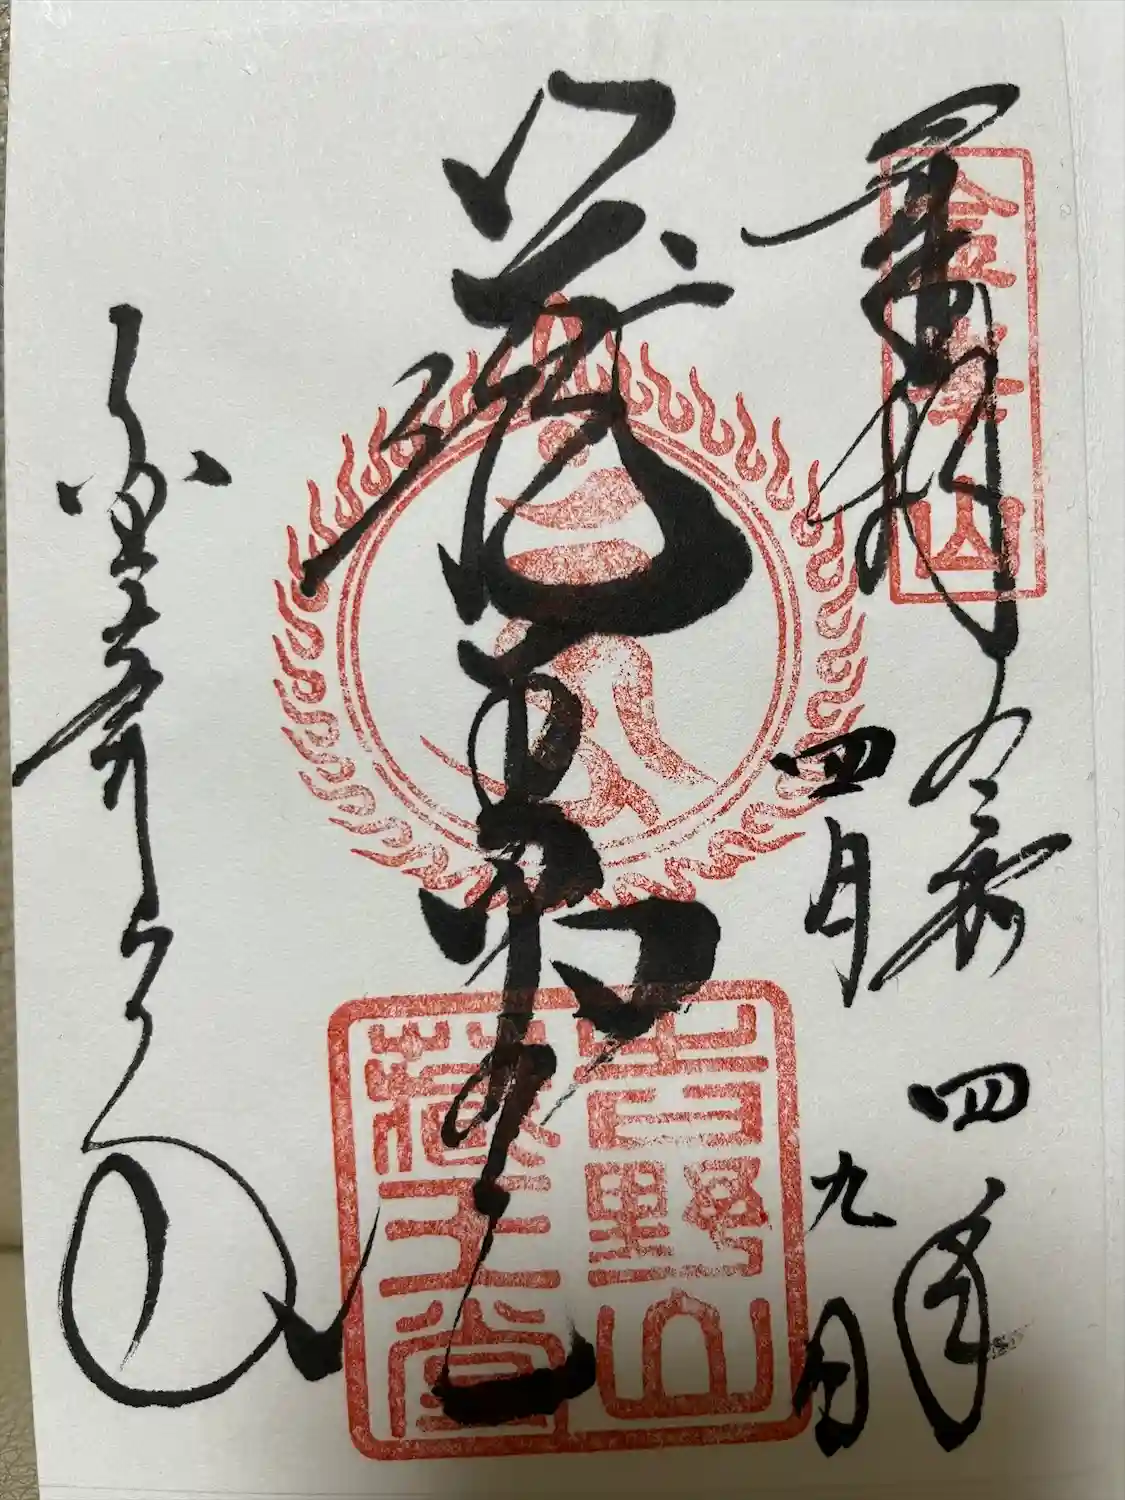 金峯山
奉拝
令和四年
四月九日
蔵王
吉野山
蔵王堂
金峯山寺